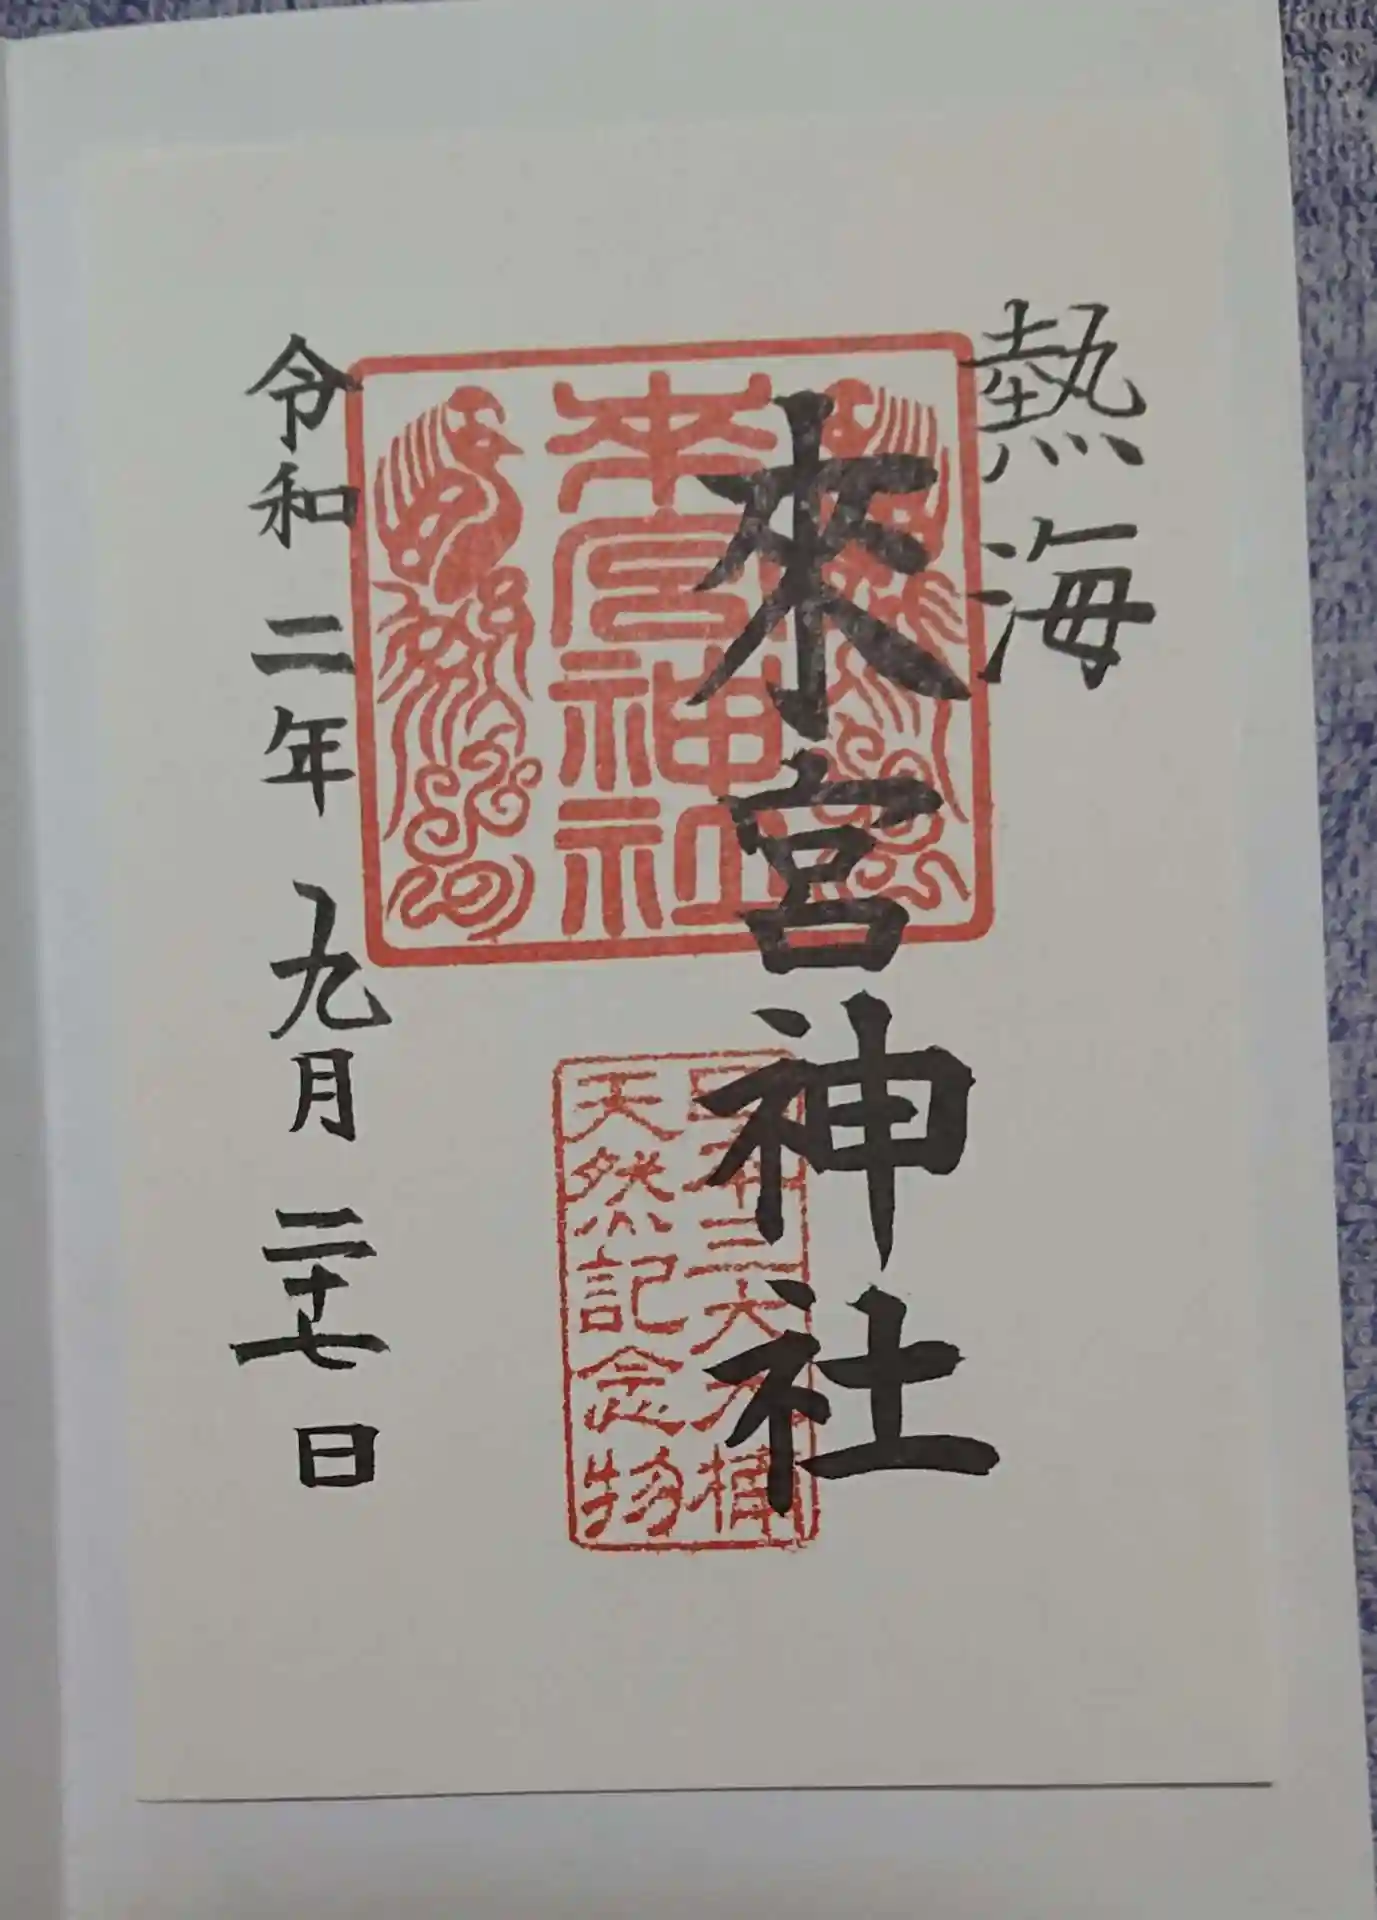 熱海
來宮神社
來宮神社
日本三大大楠
天然記念物
令和二年九月二十七日